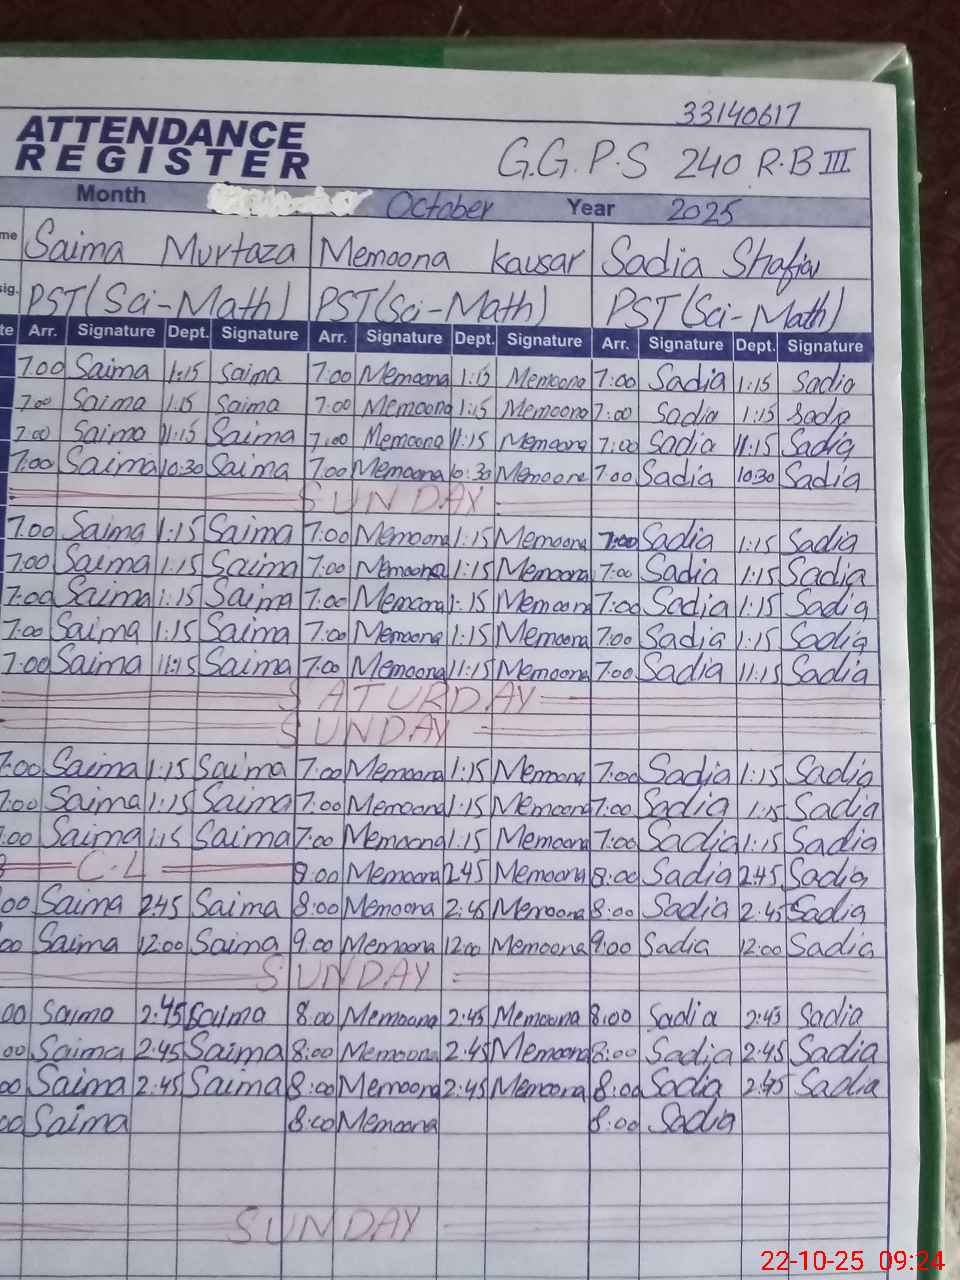 33140617
ATTENDANCE
REGISTER
G.G.P.S 240 R.B III
Month October Year 2025
me Saima Murtaza Memoona kausar Sadia Shafiq
sig. PST(Sci-Math) PST(Sci-Math) PST(Sci-Math)
te Arr. Signature Dept. Signature Arr. Signature Dept. Signature Arr. Signature Dept. Signature
7.00 Saima 1:15 Saima 7:00 Memoona 1:15 Memoona 7:00 Sadia 1:15 Sadia
7:00 Saima 1:15 Saima 7:00 Memoona 1:15 Memoona 7:00 Sadia 1:15 Sadia
7:00 Saima 11:15 Saima 7:00 Memoona 11:15 Memoona 7:00 Sadia 11:15 Sadia
7:00 Saima 10:30 Saima 7:00 Memoona 10:30 Memoona 7:00 Sadia 10:30 Sadia
SUNDAY
7:00 Saima 1:15 Saima 7:00 Memoona 1:15 Memoona 7:00 Sadia 1:15 Sadia
7:00 Saima 1:15 Saima 7:00 Memoona 1:15 Memoona 7:00 Sadia 1:15 Sadia
7:00 Saima 1:15 Saima 7:00 Memoona 1:15 Memoona 7:00 Sadia 1:15 Sadia
7:00 Saima 1:15 Saima 7:00 Memoona 1:15 Memoona 7:00 Sadia 1:15 Sadia
7:00 Saima 11:15 Saima 7:00 Memoona 11:15 Memoona 7:00 Sadia 11:15 Sadia
SATURDAY
SUNDAY
7:00 Saima 1:15 Saima 7:00 Memoona 1:15 Memoona 7:00 Sadia 1:15 Sadia
7:00 Saima 1:15 Saima 7:00 Memoona 1:15 Memoona 7:00 Sadia 1:15 Sadia
7:00 Saima 1:15 Saima 7:00 Memoona 1:15 Memoona 7:00 Sadia 1:15 Sadia
C-L 8:00 Memoona 2:45 Memoona 8:00 Sadia 2:45 Sadia
00 Saima 2:45 Saima 8:00 Memoona 2:45 Memoona 8:00 Sadia 2:45 Sadia
00 Saima 12:00 Saima 9:00 Memoona 12:00 Memoona 9:00 Sadia 12:00 Sadia
SUNDAY
00 Saima 2:45 Saima 8:00 Memoona 2:45 Memoona 8:00 Sadia 2:45 Sadia
00 Saima 2:45 Saima 8:00 Memoona 2:45 Memoona 8:00 Sadia 2:45 Sadia
00 Saima 2:45 Saima 8:00 Memoona 2:45 Memoona 8:00 Sadia 2:45 Sadia
00 Saima 8:00 Memoona 8:00 Sadia
SUNDAY
22-10-25 09:24